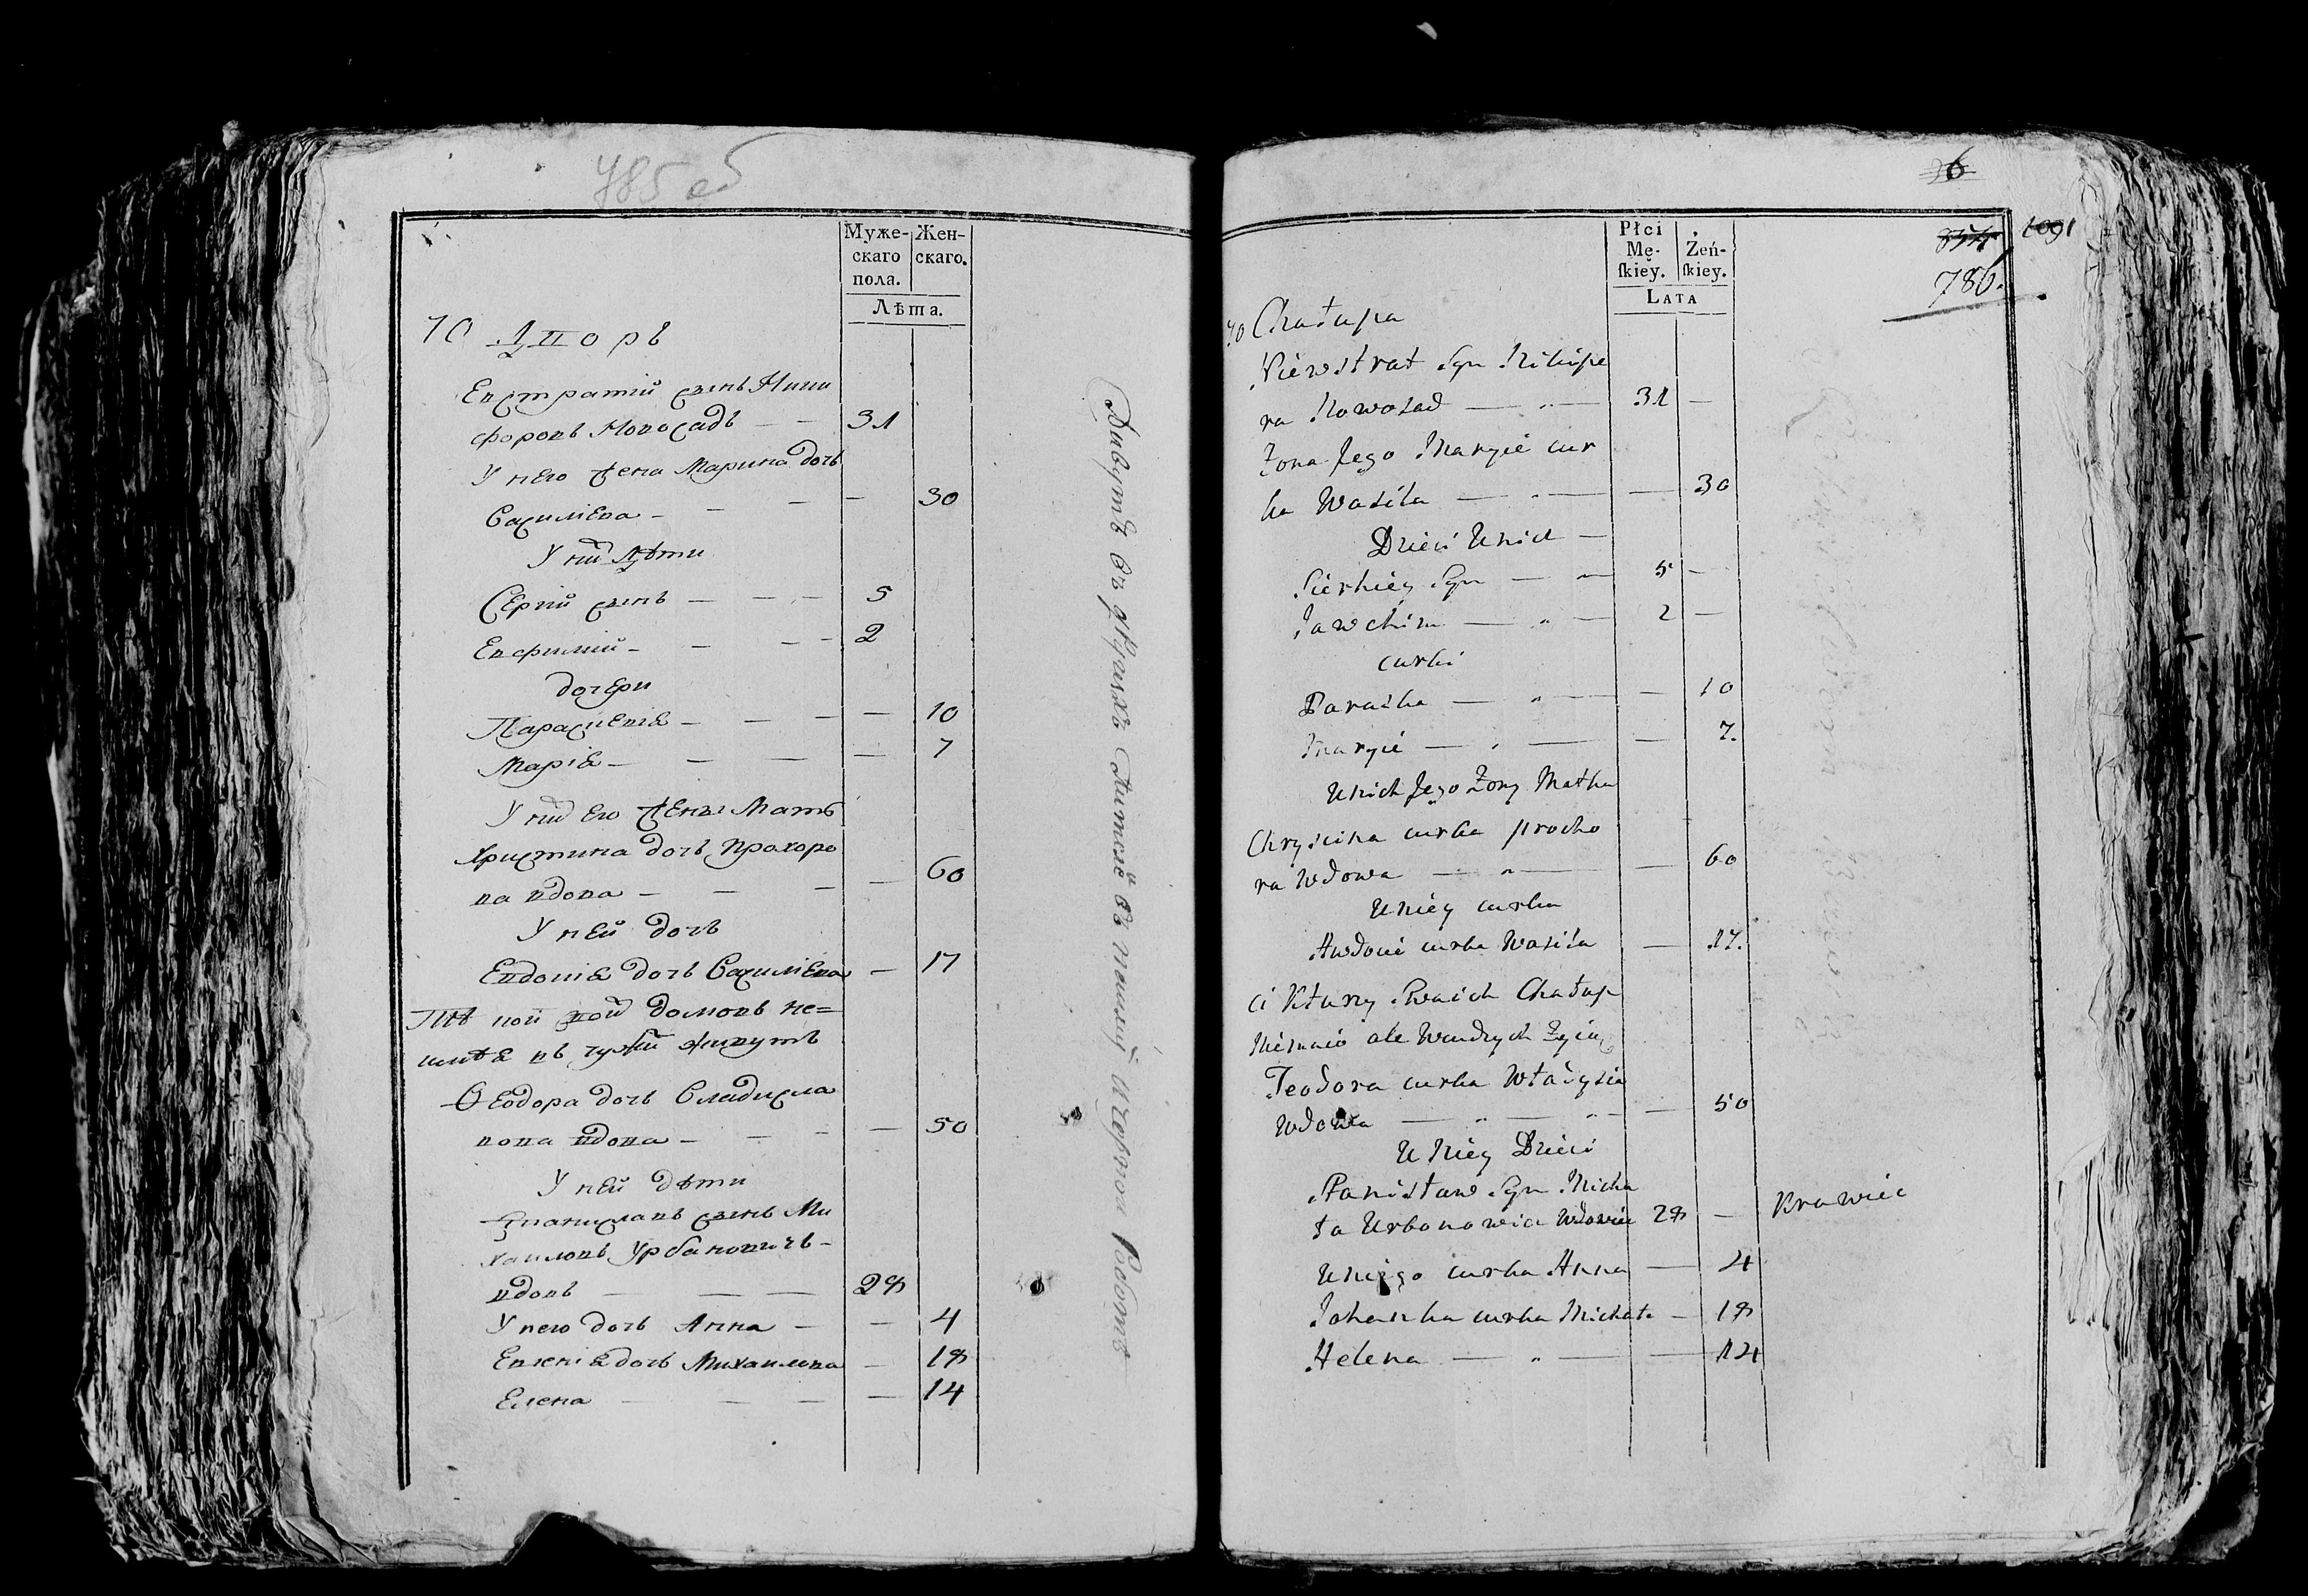 785 об
Муже-
скаго
пола.
Жен-
скаго.
Лѣта.
10 Дворъ
Евстратій сынъ Ники
форовъ Новосадъ — — 31
У него жена Марина дочь
Василіева — — — — 30
У них дѣти
Сергій сынъ — — — 5
Евфимій — — — — 2
дочери
Параскевія — — — — 10
Марія — — — — 7
У них его жены Мать
Христина дочь Прохоро
ва вдова — — — — 60
У ней дочь
Евдокія дочь Василіева — 17
домовъ не=
живутъ
Ѳеодора дочь Владисла
вова вдова — — — — 50
У ней дѣти
Станиславъ сынъ Ми
хаиловъ Урбановичъ —
вдовъ — — — 28
У него дочь Анна — — 4
дочь Михаилова — 18
Елена — — — — 14
6
Płci
Mę-
ſkiey.
Żeń-
ſkiey.
LATA
1091
786.
10 Chałupa
Niewstrat Syn Nikipe
ra Nowosad — „ — 31 —
Żona Jego Maryie cur
ka Wasila — „ — — 30
Dzieci Unich —
Sierhiey Syn — „ — 5 —
Jawchim — „ — 2 —
curki
Paraska — „ — — 10
Maryie — „ — — 7.
Unich Jego Żony Matka
Chryscina curka procho
ra Wdowa — „ — — 60
Uniey curka
Awdocie curka Wasila — 17.
ci Kturzy Swoich Chałup
Niemaió ale Wcudzych Żyią
Teodora curka Władysła
Wdowa — „ — „ — — 50
U Niey Dzieci
Stanisław Syn Micha
ła Urbanowicz Wdowiec 28 — Krawiec
Uniego curka Anna — 4
Johanka curka Michała — 18
Helena — „ — — 14